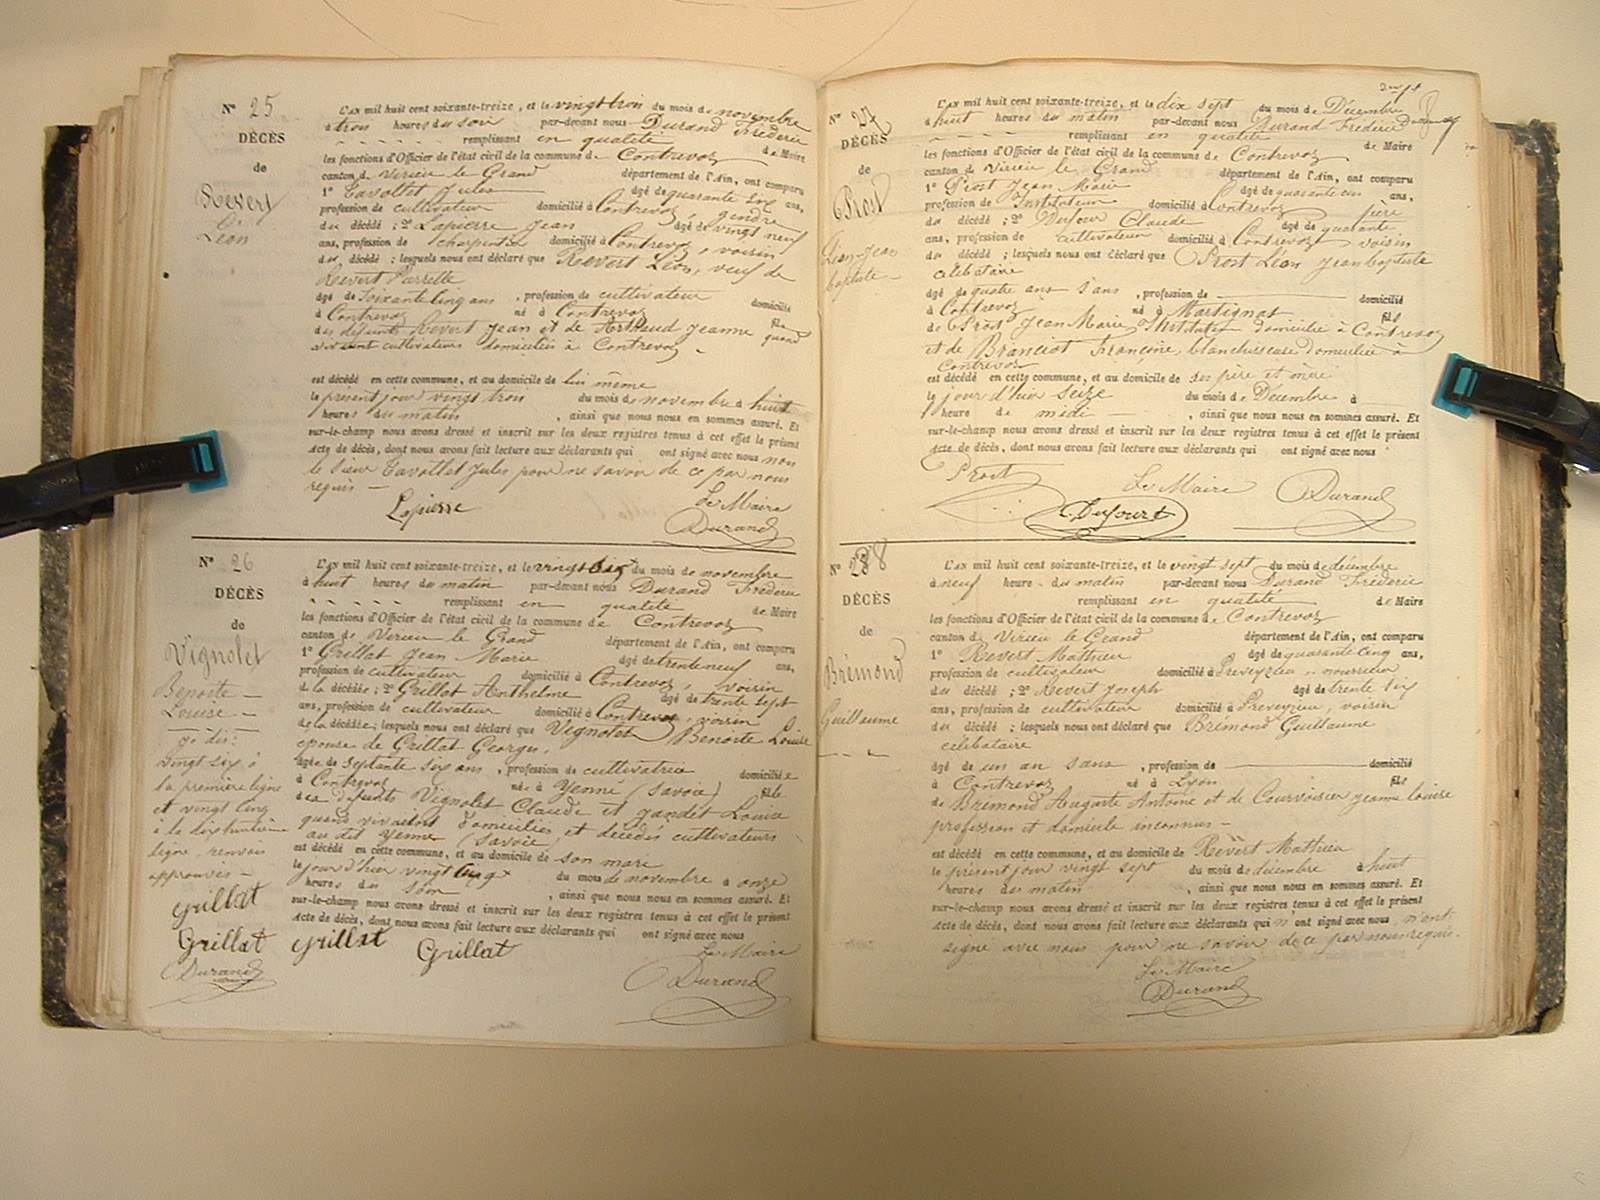 N° 25
DÉCÈS
de
Revert
Léon
L'an mil huit cent soixante-treize, et le vingt trois du mois de novembre
à trois heures du soir par-devant nous Durand Frédéric
remplissant en qualité de Maire
les fonctions d'Officier de l'état civil de la commune de Contrevoz
canton de Virieu le Grand département de l'Ain, ont comparu
1° Tavollet Jules âgé de quarante six ans,
profession de cultivateur domicilié à Contrevoz, gendre
du décédé ; 2° Lapierre Jean âgé de vingt neuf
ans, profession de charpentier domicilié à Contrevoz, voisin
du décédé ; lesquels nous ont déclaré que Revert Léon, veuf de
Revert Pierrette
âgé de soixante cinq ans, profession de cultivateur domicilié
à Contrevoz né à Contrevoz fils
des défunts Revert Jean et de Jeanne quand
vivaient cultivateurs domiciliés à Contrevoz
est décédé en cette commune, et au domicile de lui même
le présent jour vingt trois du mois de novembre à huit
heures du matin, ainsi que nous nous en sommes assuré. Et
sur-le-champ nous avons dressé et inscrit sur les deux registres tenus à cet effet le présent
acte de décès, dont nous avons fait lecture aux déclarants qui ont signé avec nous non
le sieur Tavollet Jules pour ne savoir de ce par nous
requis
Lapierre
Le Maire
Durand
N° 26
DÉCÈS
de
Vignolet
Benoite
Louise
vingt six à
la première ligne
et vingt cinq
à la
ligne, renvois
approuvés
Grillat
Grillat
Durand
L'an mil huit cent soixante-treize, et le vingt six du mois de novembre
à huit heures du matin par-devant nous Durand Frédéric
remplissant en qualité de Maire
les fonctions d'Officier de l'état civil de la commune de Contrevoz
canton de Virieu le Grand département de l'Ain, ont comparu
1° Grillat Jean Marie âgé de trente neuf ans,
profession de cultivateur domicilié à Contrevoz, voisin
de la décédée ; 2° Grillat Anthelme âgé de trente sept
ans, profession de cultivateur domicilié à Contrevoz, voisin
de la décédée ; lesquels nous ont déclaré que Vignolet Benoite Louise
épouse de Grillat Georges,
âgée de septante six ans, profession de cultivatrice domiciliée
à Contrevoz née à Yenne (Savoie) fille
des défunts Vignolet Claude et Jandet Louise
quand vivaient domiciliés et décédés cultivateurs
au dit Yenne (Savoie)
est décédé en cette commune, et au domicile de son mari
le jour d'hier vingt cinq du mois de novembre à onze
heures du soir, ainsi que nous nous en sommes assuré. Et
sur-le-champ nous avons dressé et inscrit sur les deux registres tenus à cet effet le présent
acte de décès, dont nous avons fait lecture aux déclarants qui ont signé avec nous
Grillat Grillat
Le Maire
Durand
N° 27
DÉCÈS
de
Prost
Léon-Jean
baptiste
L'an mil huit cent soixante-treize, et le dix sept du mois de Décembre
à huit heures du matin par-devant nous Durand Frédéric
remplissant en qualité de Maire
les fonctions d'Officier de l'état civil de la commune de Contrevoz
canton de Virieu le Grand département de l'Ain, ont comparu
1° Prost Jean Marie âgé de quarante un ans,
profession de Instituteur domicilié à Contrevoz père
du décédé ; 2° Dufour Claude âgé de quarante
ans, profession de cultivateur domicilié à Contrevoz voisin
du décédé ; lesquels nous ont déclaré que Prost Léon Jean baptiste
célibataire
âgé de quatre ans sans, profession de domicilié
à Contrevoz né à Martignat fils
de Prost Jean Marie Instituteur domicilié à Contrevoz
et de Branciot Françoise, blanchisseuse domiciliée à
Contrevoz
est décédé en cette commune, et au domicile de ses père et mère
le jour d'hier seize du mois de Décembre à
heure de midi, ainsi que nous nous en sommes assuré. Et
sur-le-champ nous avons dressé et inscrit sur les deux registres tenus à cet effet le présent
acte de décès, dont nous avons fait lecture aux déclarants qui ont signé avec nous
Prost
Le Maire Durand
C. Dufourt
N° 28
DÉCÈS
de
Brémond
Guillaume
L'an mil huit cent soixante-treize, et le vingt sept du mois de décembre
à neuf heure du matin par-devant nous Durand Frédéric
remplissant en qualité de Maire
les fonctions d'Officier de l'état civil de la commune de Contrevoz
canton de Virieu le Grand département de l'Ain, ont comparu
1° Revert Mathieu âgé de quarante cinq ans,
profession de cultivateur domicilié à Preveyzieu nourricier
du décédé ; 2° Revert Joseph âgé de trente six
ans, profession de cultivateur domicilié à Preveyzieu, voisin
du décédé ; lesquels nous ont déclaré que Brémond Guillaume
célibataire
âgé de un an sans, profession de domicilié
à Contrevoz né à Lyon fils
de Brémond Auguste Antoine et de Courvoisier Jeanne Louise
profession et domicile inconnus
est décédé en cette commune, et au domicile de Revert Mathieu
le présent jour vingt sept du mois de décembre à huit
heures du matin, ainsi que nous nous en sommes assuré. Et
sur-le-champ nous avons dressé et inscrit sur les deux registres tenus à cet effet le présent
acte de décès, dont nous avons fait lecture aux déclarants qui n'ont signé avec nous n'ont
signé avec nous pour ne savoir de ce par nous requis.
Le Maire
Durand